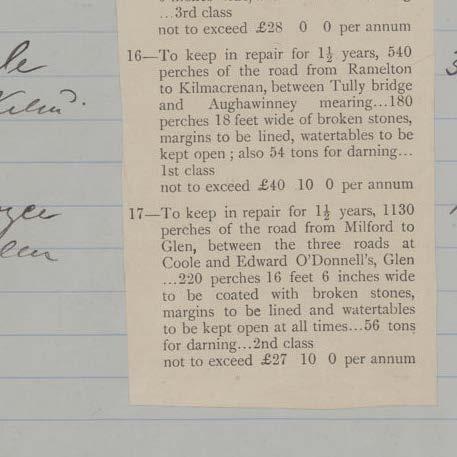 ...3rd class
not to exceed £28 0 0 per annum
16—To keep in repair for 1½ years, 540
perches of the road from Ramelton
to Kilmacrenan, between Tully bridge
and Aughawinney mearing...180
perches 18 feet wide of broken stones,
margins to be lined, watertables to be
kept open ; also 54 tons for darning...
1st class
not to exceed £40 10 0 per annum
17—To keep in repair for 1½ years, 1130
perches of the road from Milford to
Glen, between the three roads at
Coole and Edward O'Donnell's, Glen
...220 perches 16 feet 6 inches wide
to be coated with broken stones,
margins to be lined and watertables
to be kept open at all times...56 tons
for darning...2nd class
not to exceed £27 10 0 per annum